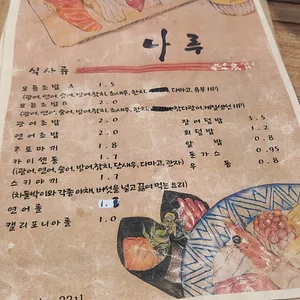 나루
식사류
모듬초밥 A 1.5
(광어,연어,숭어,방어,참치,초새우,한치, 다마고,유부 11P)
모듬초밥 B 2.0
(광어,연어,숭어,방어,참치,초새우,한치, 참다랑어,계절생선 11P)
광어초밥 2.0 장어덮밥 3.5
연어초밥 2.0 회덮밥 1.2
후토마끼 1.8 알밥 0.8
카이센동 1.7 돈가스 0.95
(광어,연어,숭어,방어,참치,단새우,다마고,관자) 우동 0.8
스키야끼 1.7
(차돌박이와 각종 야채,버섯을 넣고 끓여 먹는 요리)
연어롤
캘리포니아롤 1.0